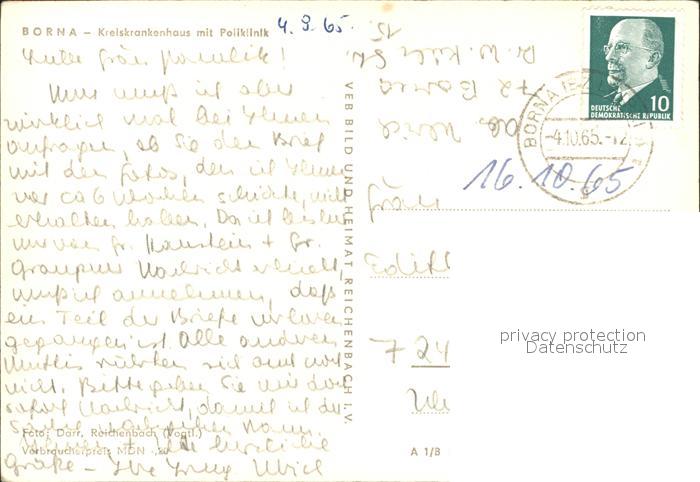 BORNA – Kreiskrankenhaus mit Poliklinik
4. 9. 65.
Nun muß ich aber
wirklich mal bei Ihnen
anfragen, ob Sie den Brief
mit den Fotos, den ich Ihnen
vor ca 6 Wochen schickte, nicht
erhalten haben. Da ich bisher
nur von Fr. + Fr.
Nachricht erhielt,
muß ich annehmen, daß
ein Teil der Briefe verloren
gegangen ist. Alle anderen
Muttis rührten sich auch
nicht. Bitte geben Sie mir doch
sofort Nachricht, damit ich
Grüße – Ihre
Foto: Darr, Reichenbach (Vogtl.)
Verbraucherpreis MDN -,20
VEB BILD UND HEIMAT REICHENBACH I. V.
A 1/B
15.
Dr. W. Külz Str.
72 Borna
Abs. Ulrich
BORNA
-4.10.65.-12
10
DEUTSCHE
DEMOKRATISCHE REPUBLIK
16. 10. 65
Frau
Edith
7 24
privacy protection
Datenschutz